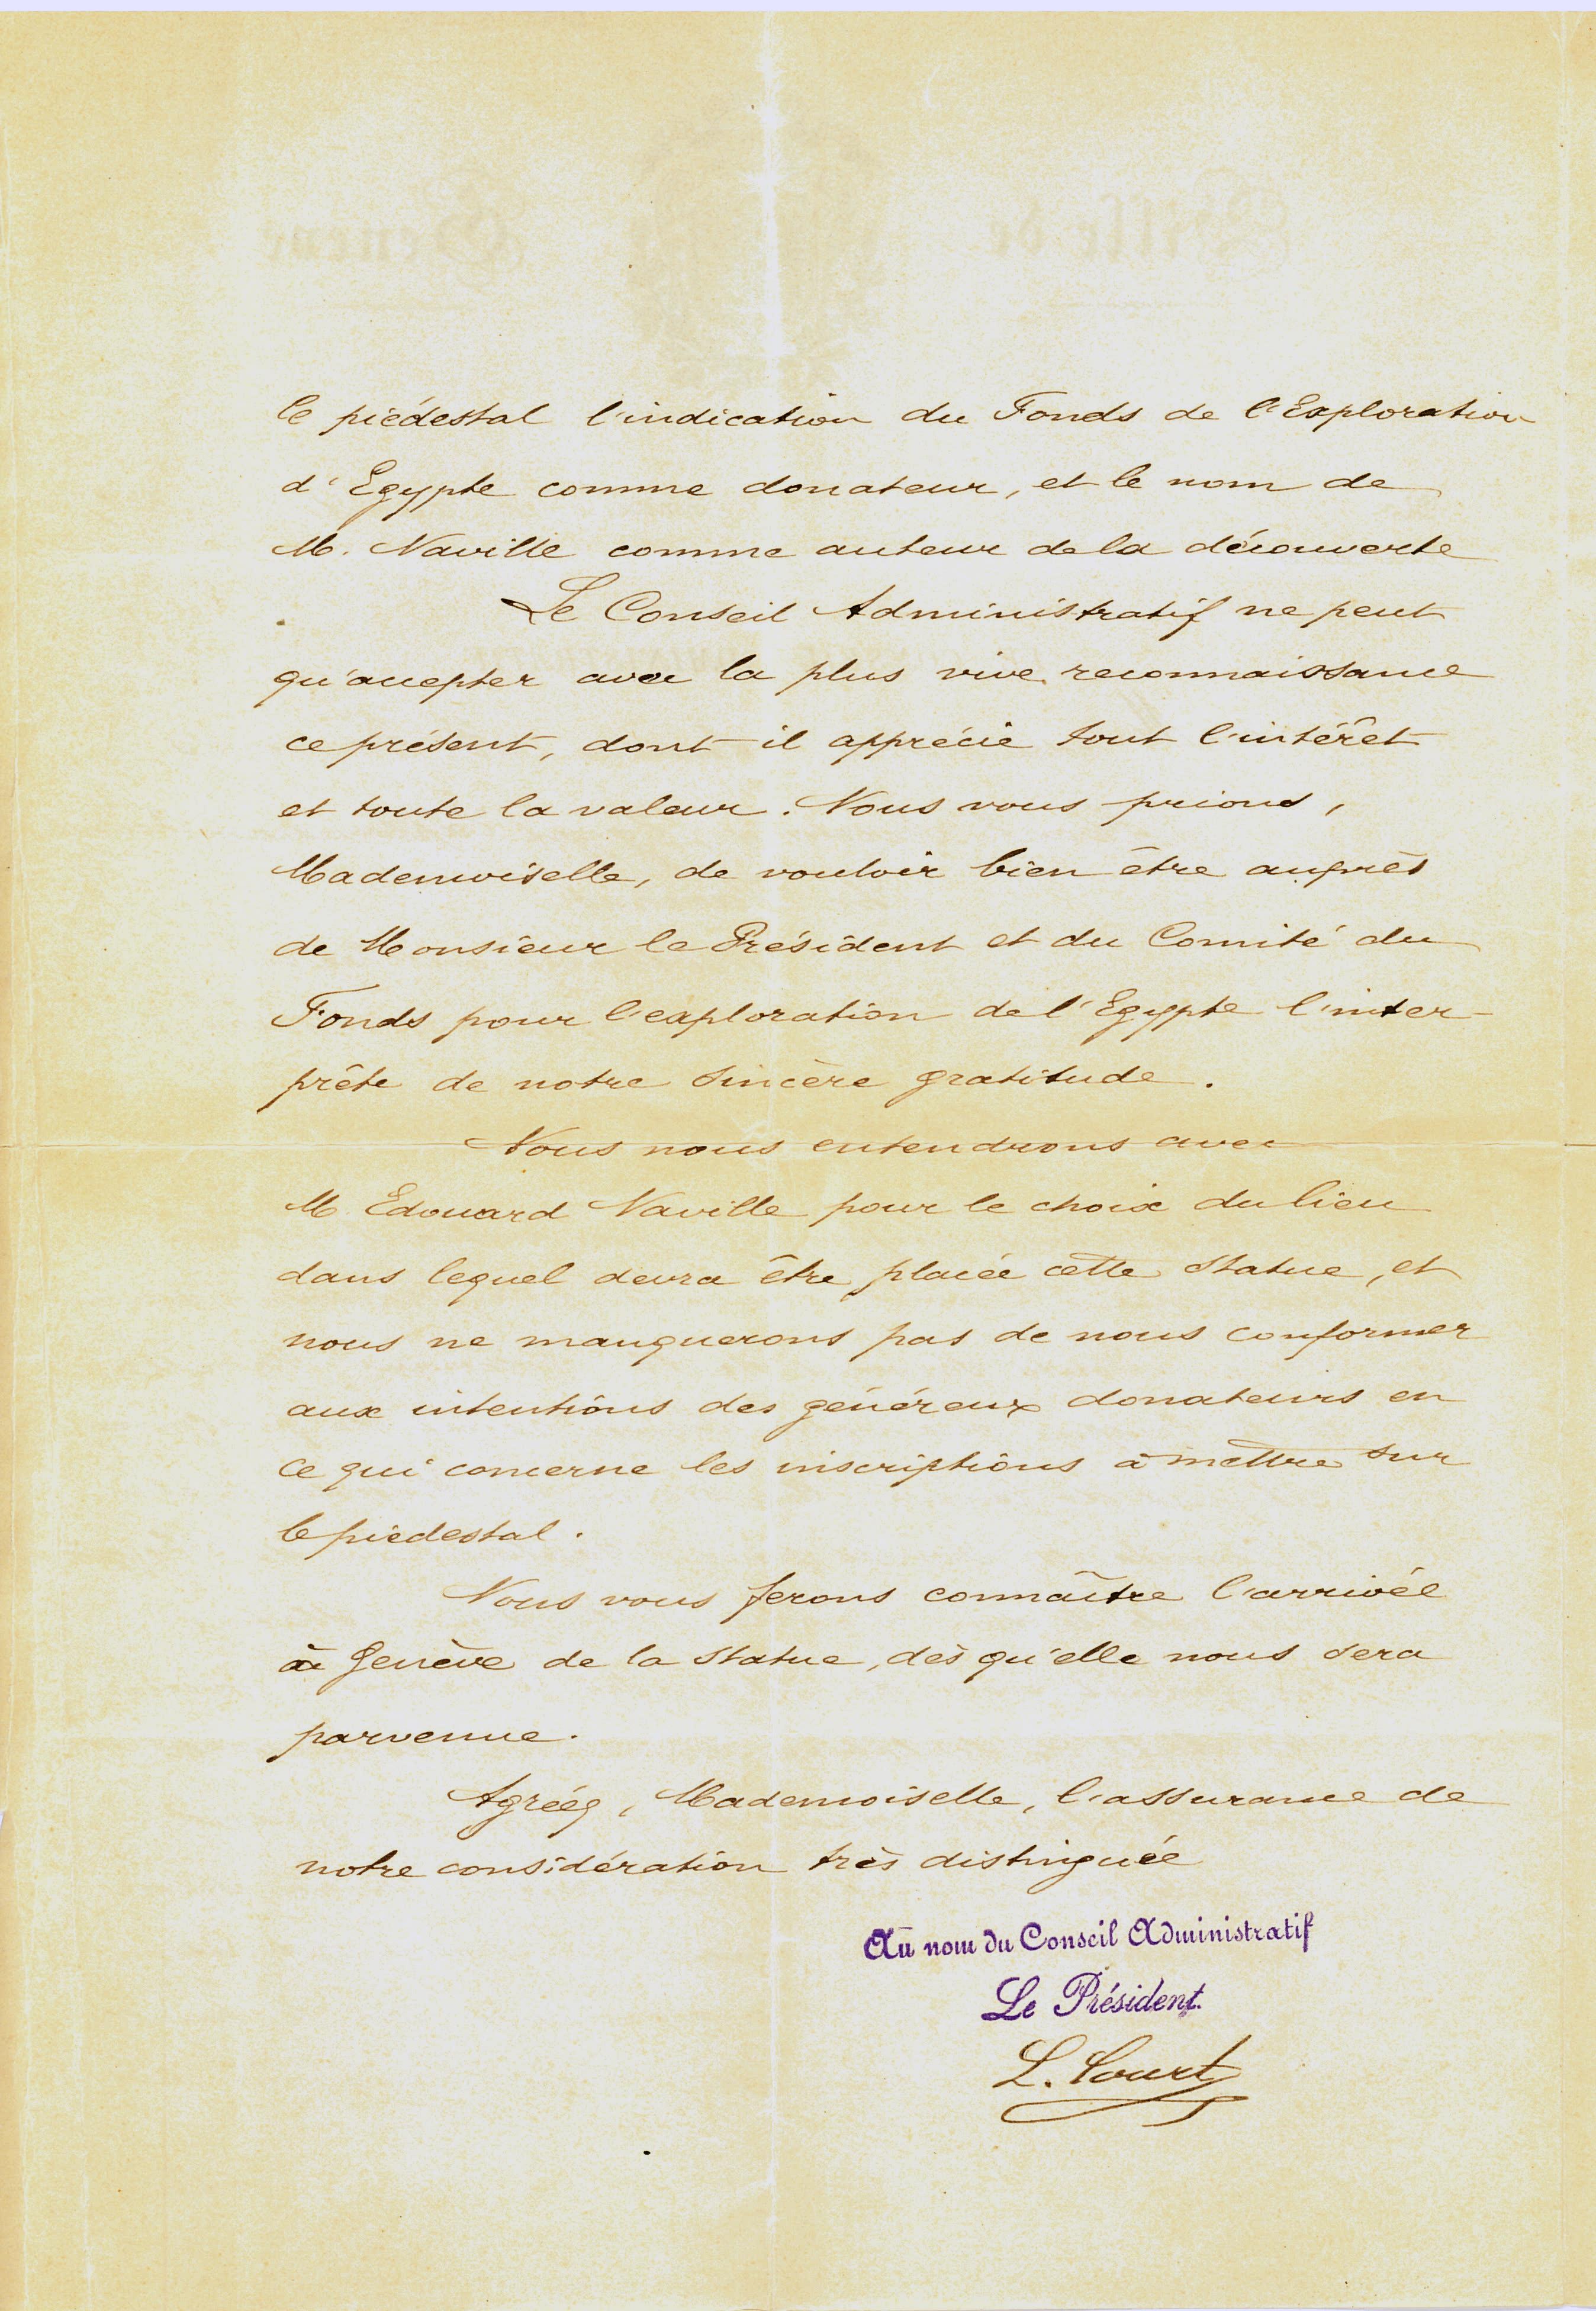 le piédestal l'indication du Fonds de l'Exploration
d'Egypte comme donateur, et le nom de
M. Naville comme auteur de la découverte
Le Conseil Administratif ne peut
qu'accepter avec la plus vive reconnaissance
ce présent, dont il apprécie tout l'intérêt
et toute la valeur. Nous vous prions,
Mademoiselle, de vouloir bien être auprès
de Monsieur le Président et du Comité du
Fonds pour l'exploration de l'Egypte l'inter-
prète de notre sincère gratitude.
Nous nous entendrons avec
M Edouard Naville pour le choix du lieu
dans lequel devra être placée cette statue, et
nous ne manquerons pas de nous conformer
aux intentions des généreux donateurs en
ce qui concerne les inscriptions à mettre sur
le piédestal.
Nous vous ferons connaître l'arrivée
à Genève de la statue, dès qu'elle nous sera
parvenue.
Agréez, Mademoiselle, l'assurance de
notre considération très distinguée
Au nom du Conseil Administratif
Le Président.
L. Court